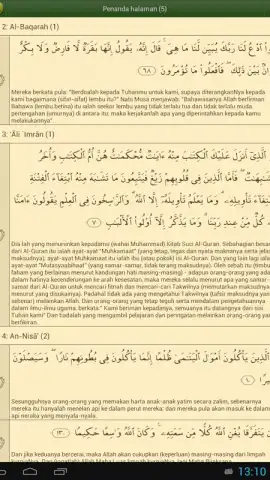 Penanda halaman (5)
2: Al-Baqarah (1)
ٱدْعُ لَنَا رَبَّكَ يُبَيِّن لَّنَا مَا هِىَ ۚ قَالَ إِنَّهُۥ يَقُولُ إِنَّهَا بَقَرَةٌ لَّا فَارِضٌ وَلَا بِكْرٌ
بَيْنَ ذَٰلِكَ ۖ فَٱفْعَلُوا۟ مَا تُؤْمَرُونَ ٦٨
Mereka berkata pula: "Berdoalah kepada Tuhanmu untuk kami, supaya diterangkanNya kepada
kami bagaimana (sifat-sifat) lembu itu?" Nabi Musa menjawab: "Bahawasanya Allah berfirman
Bahawa (lembu betina) itu ialah seekor lembu yang tidak terlalu tua dan tidak terlalu muda,
pertengahan (umurnya) di antara itu; maka kerjakanlah apa yang diperintahkan kepada kamu
melakukannya".
3: 'Āli `Imrān (1)
ٱلَّذِىٓ أَنزَلَ عَلَيْكَ ٱلْكِتَٰبَ مِنْهُ ءَايَٰتٌ مُّحْكَمَٰتٌ هُنَّ أُمُّ ٱلْكِتَٰبِ وَأُخَرُ
مُتَشَٰبِهَٰتٌ ۖ فَأَمَّا ٱلَّذِينَ فِى قُلُوبِهِمْ زَيْغٌ فَيَتَّبِعُونَ مَا تَشَٰبَهَ مِنْهُ ٱبْتِغَآءَ ٱلْفِتْنَةِ
تَأْوِيلِهِۦ ۗ وَمَا يَعْلَمُ تَأْوِيلَهُۥٓ إِلَّا ٱللَّهُ ۗ وَٱلرَّٰسِخُونَ فِى ٱلْعِلْمِ يَقُولُونَ ءَامَنَّا
كُلٌّ مِّنْ عِندِ رَبِّنَا ۗ وَمَا يَذَّكَّرُ إِلَّآ أُو۟لُوا۟ ٱلْأَلْبَٰبِ ٧
Dia lah yang menurunkan kepadamu (wahai Muhammad) Kitab Suci Al-Quran. Sebahagian besar
dari Al-Quran itu ialah ayat-ayat "Muhkamaat" (yang tetap, tegas dan nyata maknanya serta jelas
maksudnya); ayat-ayat Muhkamaat itu ialah ibu (atau pokok) isi Al-Quran. Dan yang lain lagi ialah
ayat-ayat "Mutasyaabihaat" (yang samar-samar, tidak terang maksudnya). Oleh sebab itu (timbulla
faham yang berlainan menurut kandungan hati masing-masing) - adapun orang-orang yang ada
dalam hatinya kecenderungan ke arah kesesatan, maka mereka selalu menurut apa yang samar-
samar dari Al-Quran untuk mencari fitnah dan mencari-cari Takwilnya (memutarkan maksudnya
menurut yang disukainya). Padahal tidak ada yang mengetahui Takwilnya (tafsir maksudnya yang
sebenar) melainkan Allah. Dan orang-orang yang tetap teguh serta mendalam pengetahuannya
dalam ilmu-ilmu ugama, berkata:" Kami beriman kepadanya, semuanya itu datangnya dari sisi
Tuhan kami" Dan tiadalah yang mengambil pelajaran dan peringatan melainkan orang-orang yang
berfikiran.
4: An-Nisā' (2)
ٱلَّذِينَ يَأْكُلُونَ أَمْوَٰلَ ٱلْيَتَٰمَىٰ ظُلْمًا إِنَّمَا يَأْكُلُونَ فِى بُطُونِهِمْ نَارًا ۖ وَسَيَصْلَوْنَ
١٠
Sesungguhnya orang-orang yang memakan harta anak-anak yatim secara zalim, sebenarnya
mereka itu hanyalah menelan api ke dalam perut mereka; dan mereka pula akan masuk ke dalam
api neraka yang menyala-nyala.
يَتَفَرَّقَا يُغْنِ ٱللَّهُ كُلًّا مِّن سَعَتِهِۦ ۚ وَكَانَ ٱللَّهُ وَٰسِعًا حَكِيمًا ١٣٠
Dan jika keduanya bercerai, maka Allah akan cukupkan (keperluan) masing-masing dari limpah
13:10